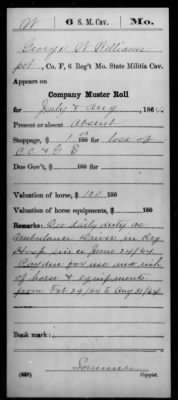 W 6 S. M. Cav. Mo.
George W Williams
pvt, Co. F, 6 Reg't Mo. State Militia Cav.
Appears on
Company Muster Roll
for July & Aug, 186
Present or absent Absent
Stoppage, $ 100 for loss of
Due Gov't, $ 100
Valuation of horse, $ 100 100
Valuation of horse equipments, $ 100
Remarks: On daily duty as
Ambulance Driver in Reg
Hosp since June 24/64
for use and risk
of horse & equipments
from Feb 29/64 to Aug 31/64
Book mark:
(858) Copyist.